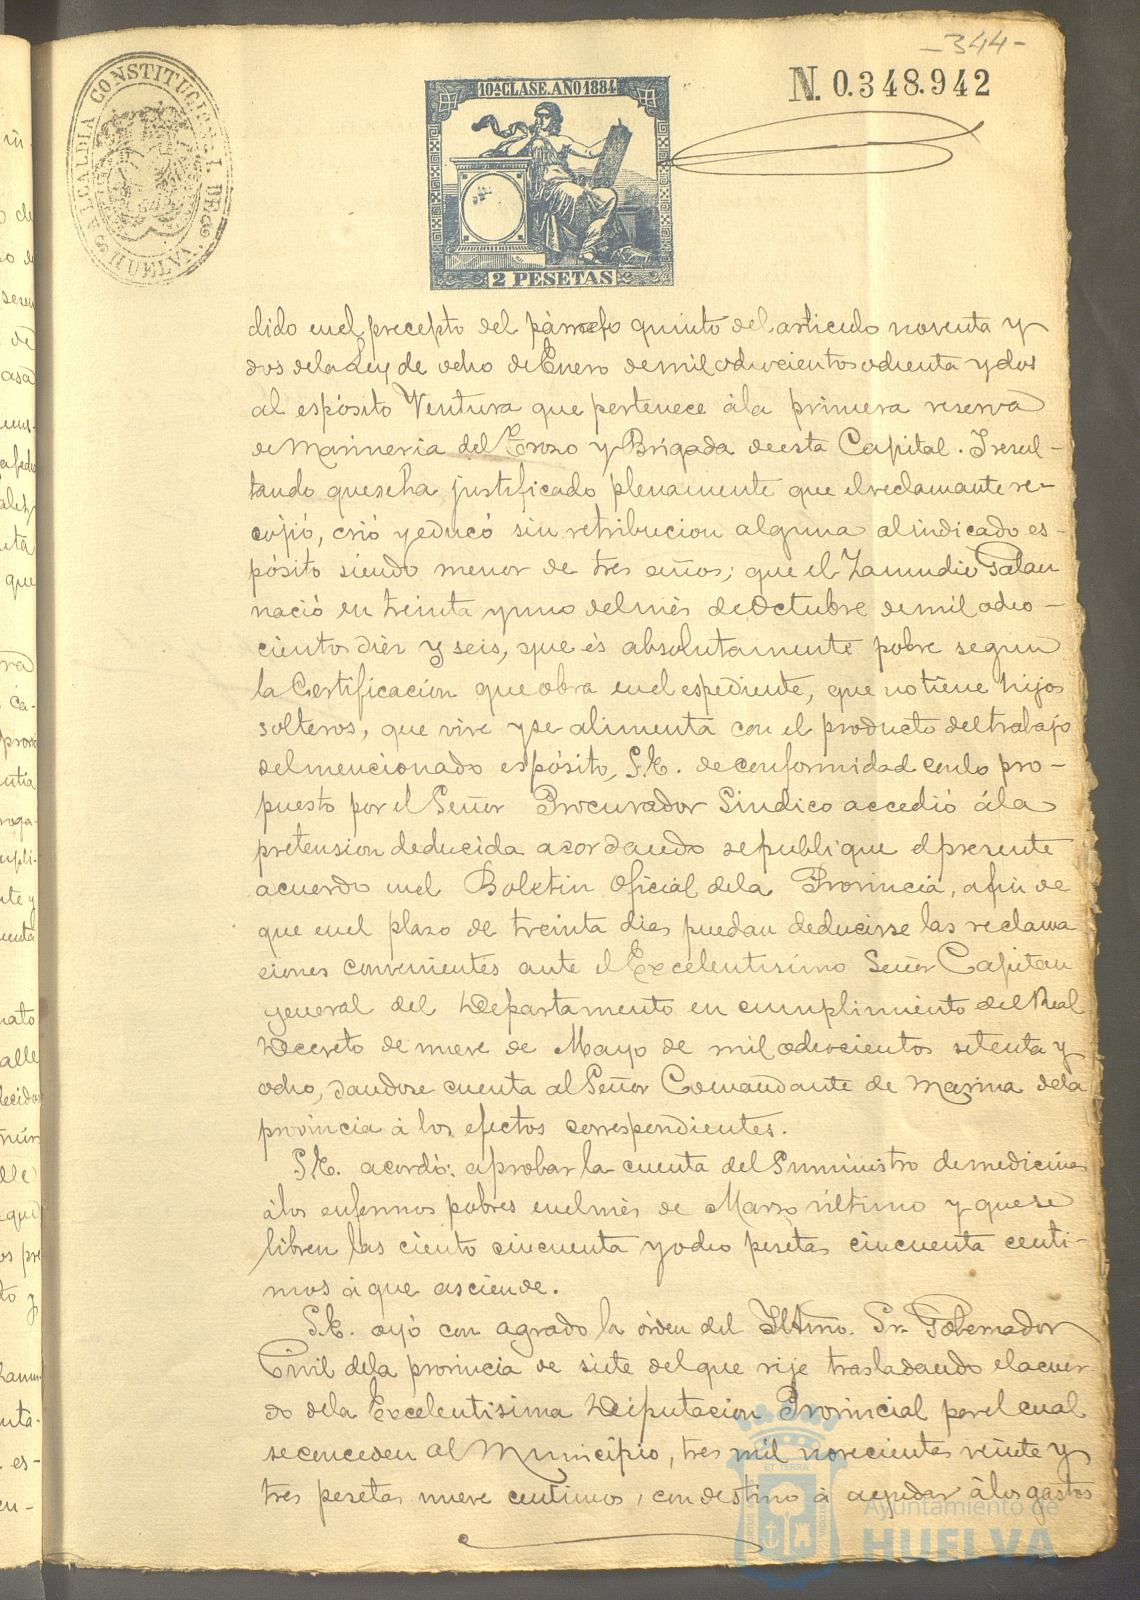 -344-
N. 0.348.942
ALCALDIA CONSTITUCIONAL DE HUELVA
10ª CLASE. AÑO 1884
2 PESETAS
dido en el precepto del párrafo quinto del articulo noventa y
dos de la Ley de ocho de Enero de mil ochocientos ochenta y dos
al espósito Ventura que pertenece á la primera reserva
de Marineria del Trozo y Brigada de esta Capital. Y resul-
tando que se ha justificado plenamente que el reclamante re-
cojió, crió y educó sin retribucion alguna al indicado es-
pósito siendo menor de tres años; que el Zamudio Palau
nació en treinta y uno del mes de Octubre de mil ocho-
ciento diez y seis, que és absolutamente pobre segun
la Certificacion que obra en el espediente, que no tiene hijos
solteros, que vive y se alimenta con el producto del trabajo
del mencionado espósito, S.E. de conformidad con lo pro-
puesto por el Señor Procurador Sindico accedió á la
pretension deducida acordando se publique el presente
acuerdo en el Boletin Oficial de la Provincia, afin de
que en el plazo de treinta dias puedan deducirse las reclama
ciones convenientes ante el Excelentisimo Señor Capitan
general del Departamento en cumplimiento del Real
Decreto de nueve de Mayo de mil ochocientos setenta y
ocho, dandose cuenta al Señor Comandante de Marina de la
provincia á los efectos correspondientes.
S.E. acordó: aprobar la cuenta del Suministro de medicinas
á los enfermos pobres en el mes de Marzo último y que se
libren las ciento cincuenta y ocho pesetas cincuenta centi-
mos á que asciende.
S.E. oyó con agrado la órden del Iltmo. Sr. Gobernador
Civil de la provincia de siete del que rije trasladando el acuer-
do de la Excelentisima Diputacion Provincial por el cual
se conceden al Municipio, tres mil novecientas veinte y
tres pesetas nueve centimos, con destino á ayudar á los gastos
Ayuntamiento de
HUELVA